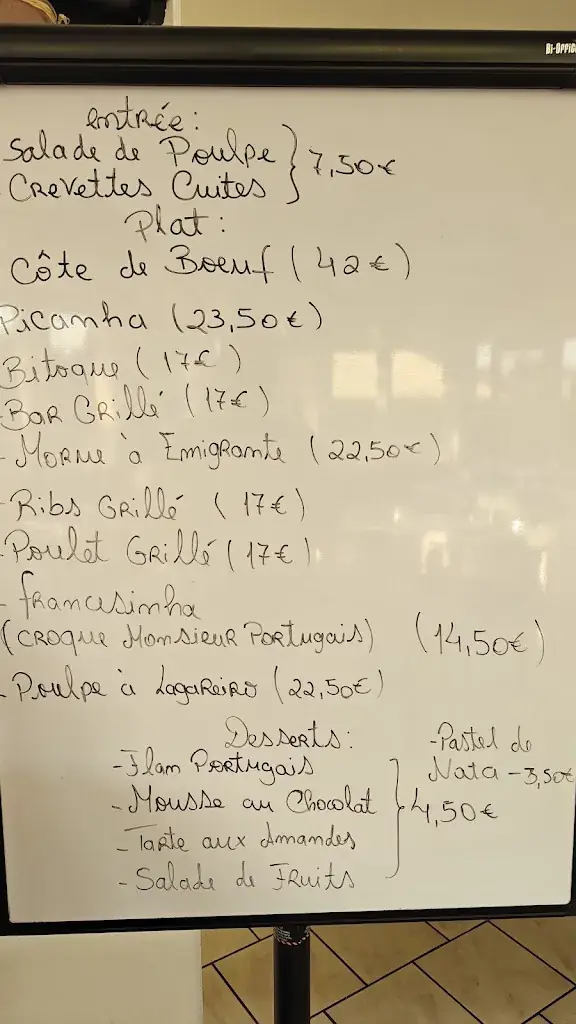 Bi-Office
entrée:
Salade de Poulpe
Crevettes Cuites } 7,50€
Plat:
Côte de Boeuf (42€)
Picanha (23,50€)
Bitoque (17€)
-Bar Grillé (17€)
- Morue à Emigrante (22,50€)
-Ribs Grillé (17€)
-Poulet Grillé (17€)
- francesinha
(croque Monsieur Portugais) (14,50€)
- Poulpe à Lagareiro (22,50€)
Desserts:
-Flam Portugais
-Mousse au Chocolat
-Tarte aux Amandes
-Salade de Fruits
} 4,50€
-Pastel de
Nata - 3,50€